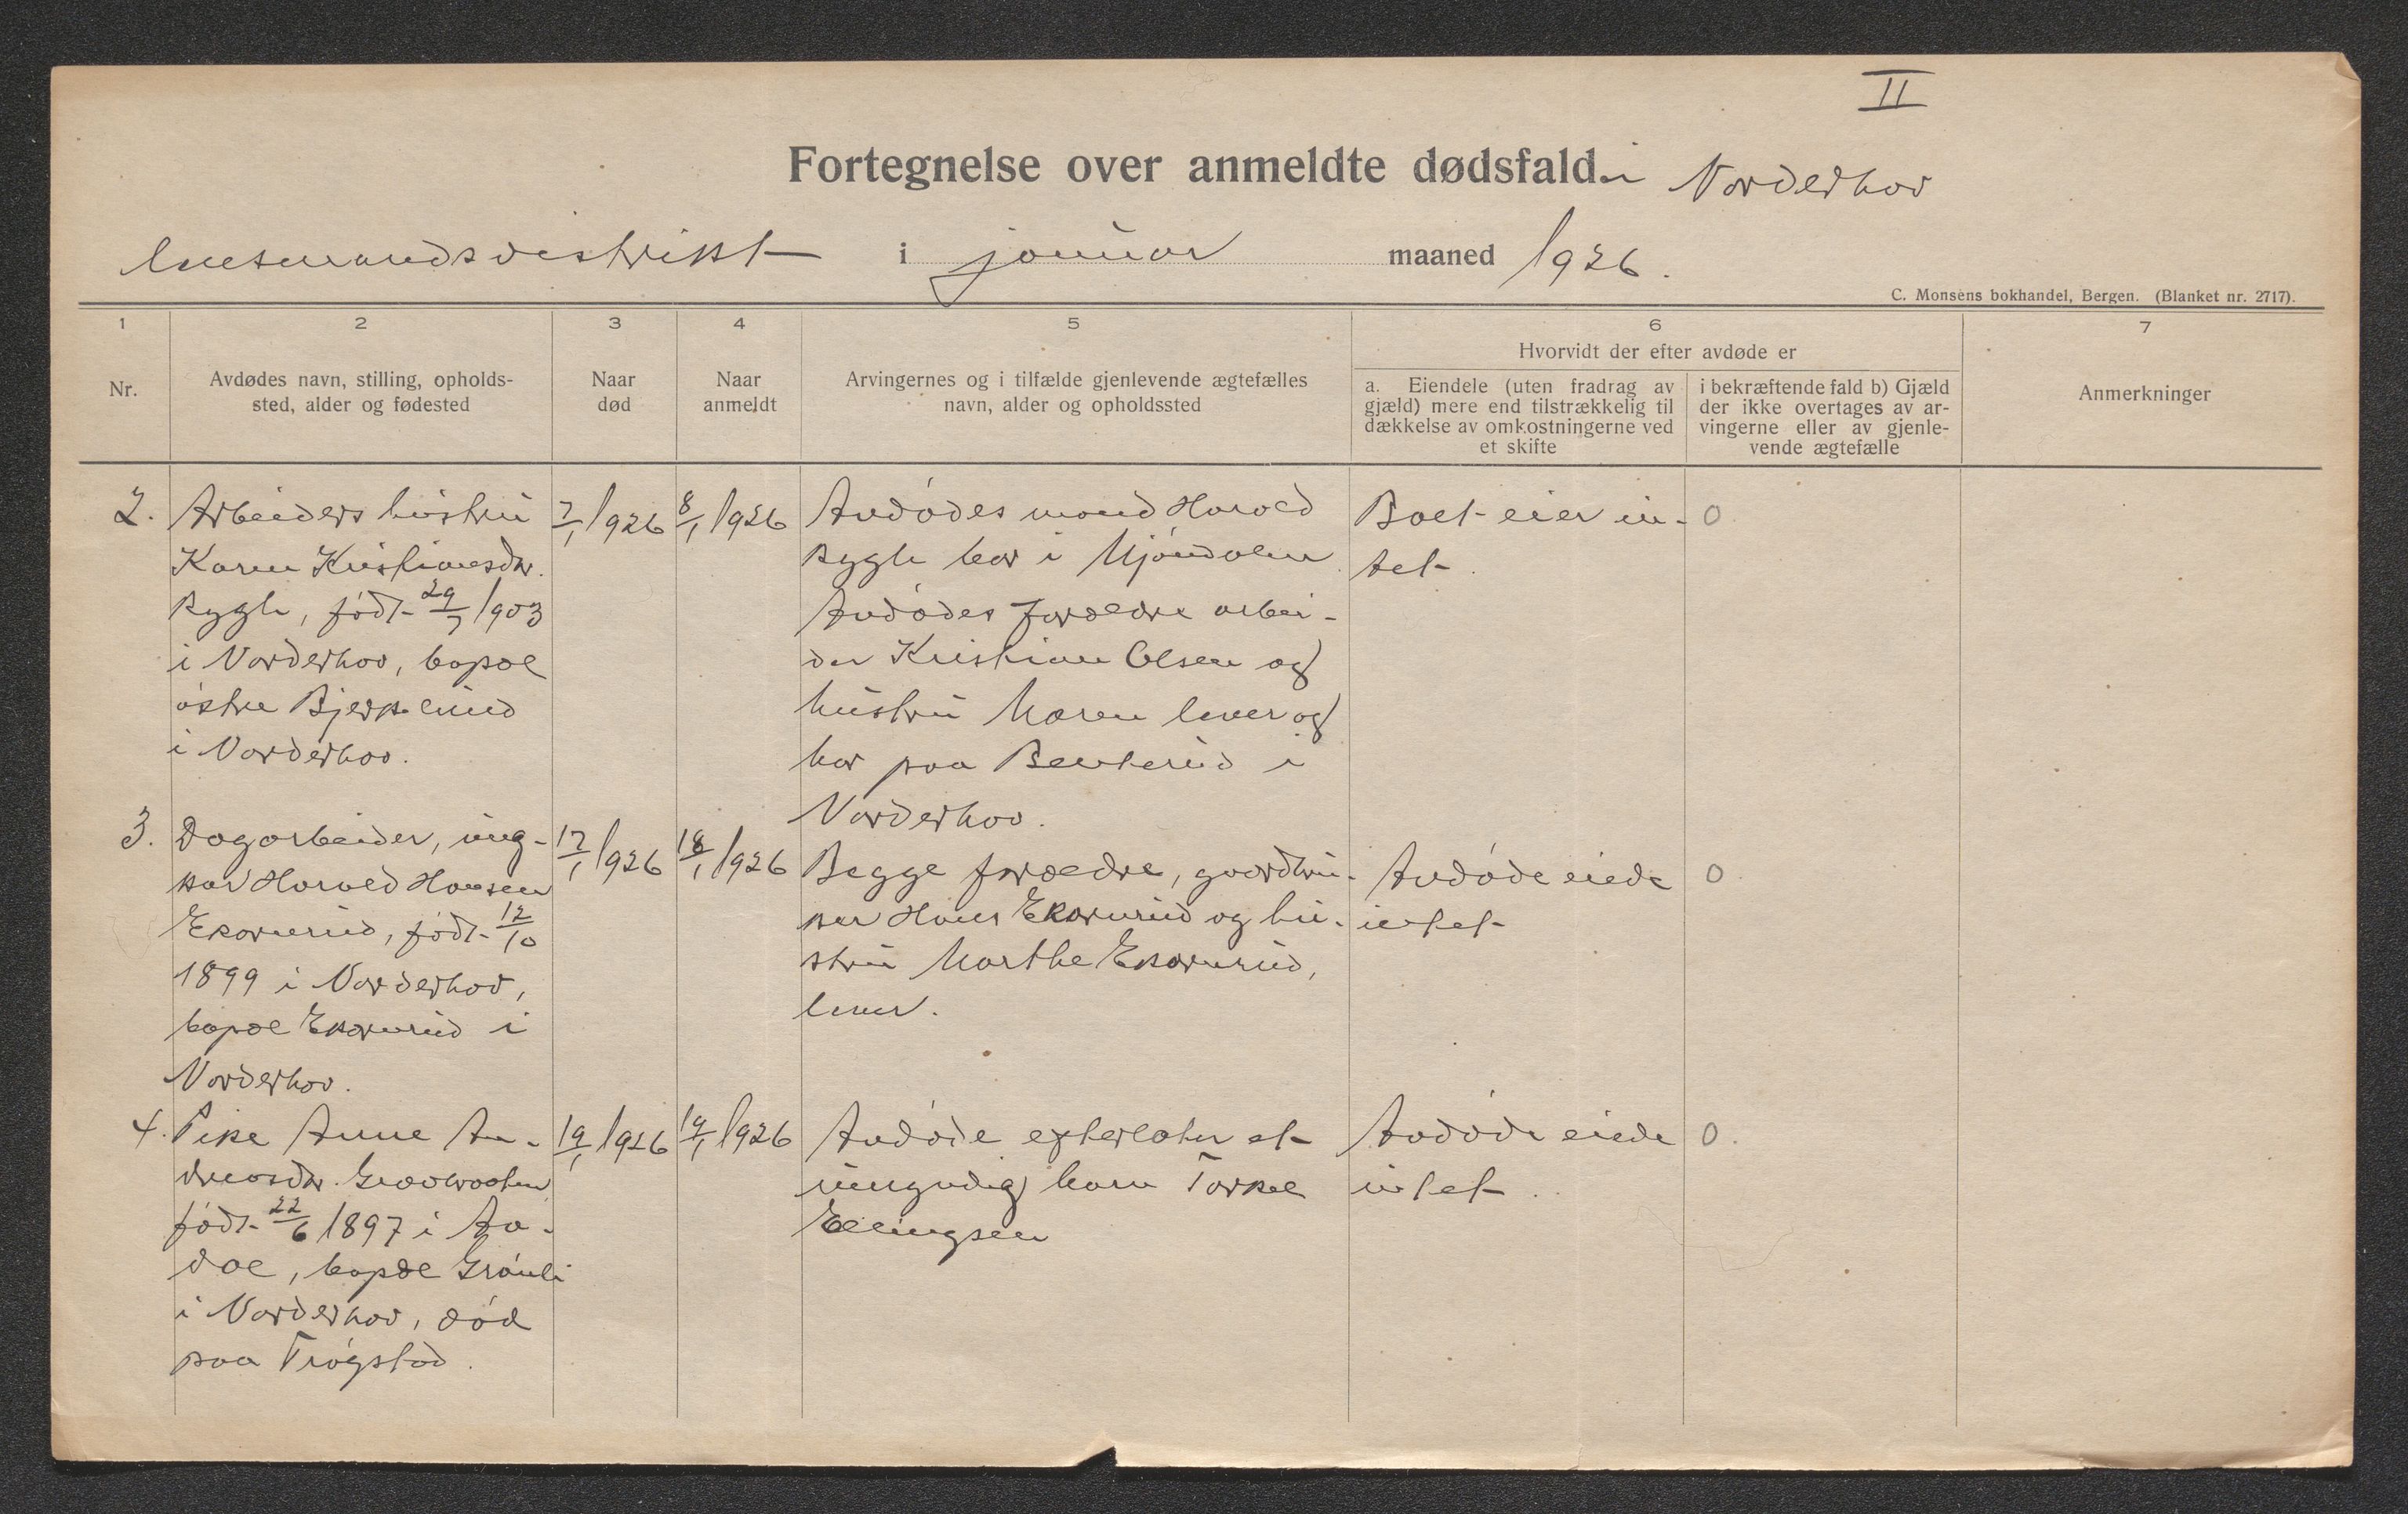 II
Fortegnelse over anmeldte dødsfald i Norderhov
lensmandsdistrikt i januar maaned 1926.
C. Monsens bokhandel, Bergen. (Blanket nr. 2717).
1
2
3
4
5
6
7
Nr.
Avdødes navn, stilling, opholds-
sted, alder og fødested
Naar
død
Naar
anmeldt
Arvingernes og i tilfælde gjenlevende ægtefælles
navn, alder og opholdssted
Hvorvidt der efter avdøde er
a. Eiendele (uten fradrag av
gjæld) mere end tilstrækkelig til
dækkelse av omkostningerne ved
et skifte
i bekræftende fald b) Gjæld
der ikke overtages av ar-
vingerne eller av gjenle-
vende ægtefælle
Anmerkninger
2.
Arbeiders hustru
Karen Kristiansdtr.
Rygh, født 29/7 1903
i Norderhov, bopæl
østre Bjerkelund
i Norderhov.
7/1 1926
8/1 1926
Avdødes mand Harald
Rygh bor i Mjøndalen.
Avdødes forældre arbei-
der Kristian Olsen og
hustru Maren lever og
bor paa Benterud i
Norderhov.
Boet eier in-
tet.
0
3.
Dagarbeider, ung-
kar Harald Hansen
Ekornrud, født 12/10
1899 i Norderhov,
bopæl Ekornrud i
Norderhov.
17/1 1926
18/1 1926
Begge forældre, gaardbru-
ker Hans Ekornrud og hu-
stru Marthe Ekornrud,
lever.
Avdøde eiede
intet
0.
4.
Pike Anne An-
dreasdtr.
født 22/6 1897 i Aa-
dal, bopæl Grønli
i Norderhov, død
paa Trøgstad.
19/1 1926
19/1 1926
Avdøde efterlater et
umyndig barn Torkel
Ellingsen
Avdøde eiede
intet.
0.